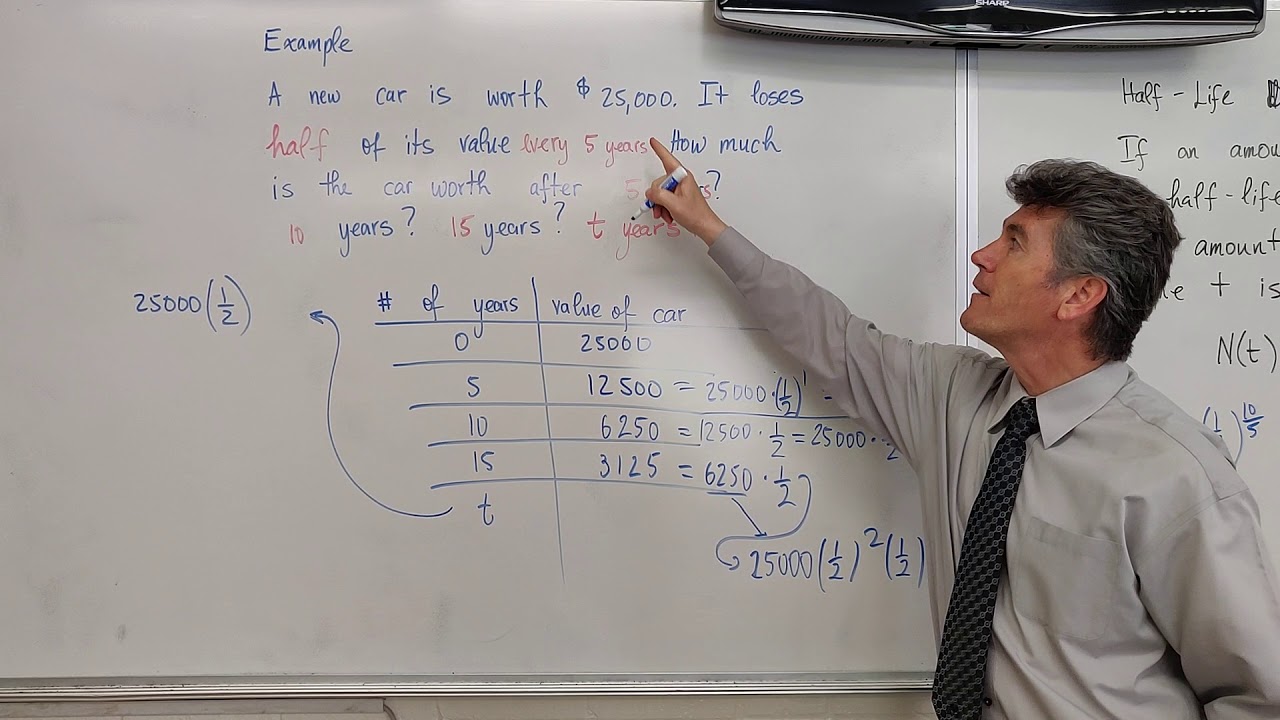 SHARP
Example
A new car is worth $25,000. It loses
half of its value every 5 years. How much
is the car worth after 5 ?
10 years? 15 years? t years
25000(1/2)
# of years value of car
0 25000
5 12500 = 25000·(1/2)^1 =
10 6250 = 12500 · 1/2 = 25000 ·
15 3125 = 6250 · 1/2
t
25000(1/2)^2(1/2)
Half-Life
If an
half-life
amount
t is
N(t)
10/5